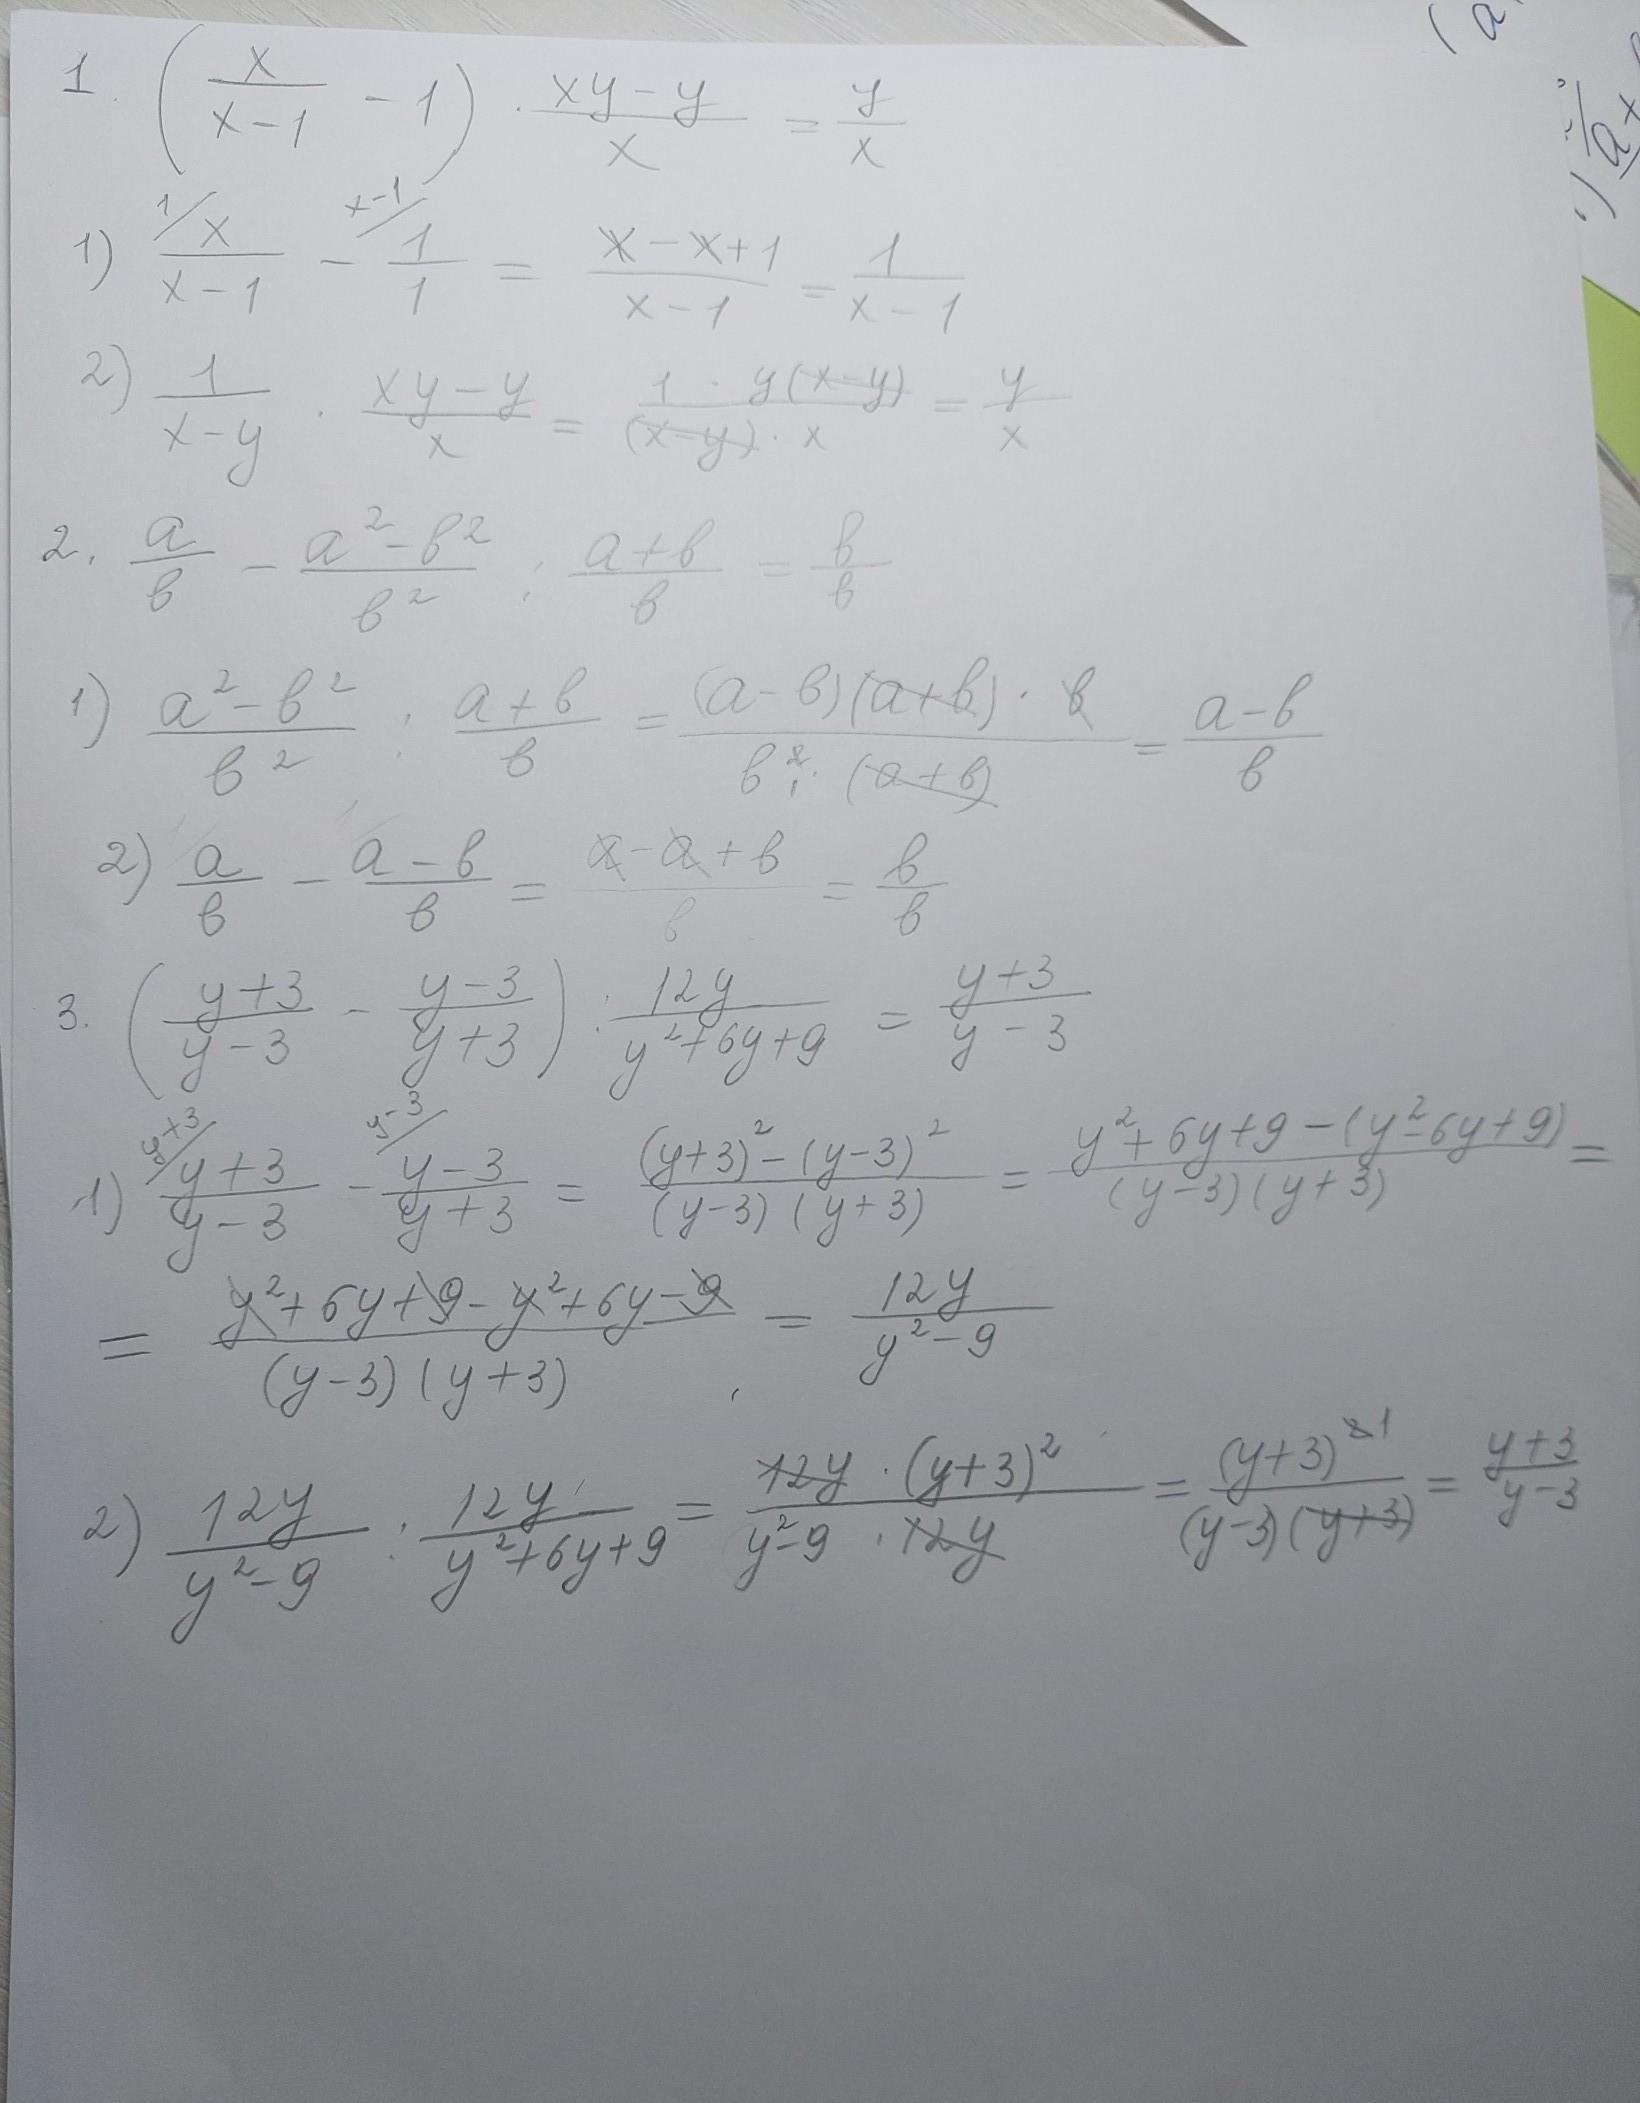 1. (x/(x-1) - 1) · (xy-y)/x = y/x
1) 1/ x/(x-1) - x-1/ 1/1 = (x-x+1)/(x-1) = 1/(x-1)
2) 1/(x-y) · (xy-y)/x = (1·y(x-y))/((x-y)·x) = y/x
2. a/в - (a²-в²)/в² : (a+в)/в = в/в
1) (a²-в²)/в² : (a+в)/в = ((a-в)(a+в)·в)/(в²·(a+в)) = (a-в)/в
2) a/в - (a-в)/в = (a-a+в)/в = в/в
3. ((y+3)/(y-3) - (y-3)/(y+3)) : 12y/(y²+6y+9) = (y+3)/(y-3)
1) y+3/ (y+3)/(y-3) - y-3/ (y-3)/(y+3) = ((y+3)²-(y-3)²)/((y-3)(y+3)) = (y²+6y+9-(y²-6y+9))/((y-3)(y+3)) =
= (y²+6y+9-y²+6y-9)/((y-3)(y+3)) = 12y/(y²-9)
2) 12y/(y²-9) : 12y/(y²+6y+9) = (12y·(y+3)²)/(y²-9·12y) = (y+3)²¹/((y-3)(y+3)) = (y+3)/(y-3)